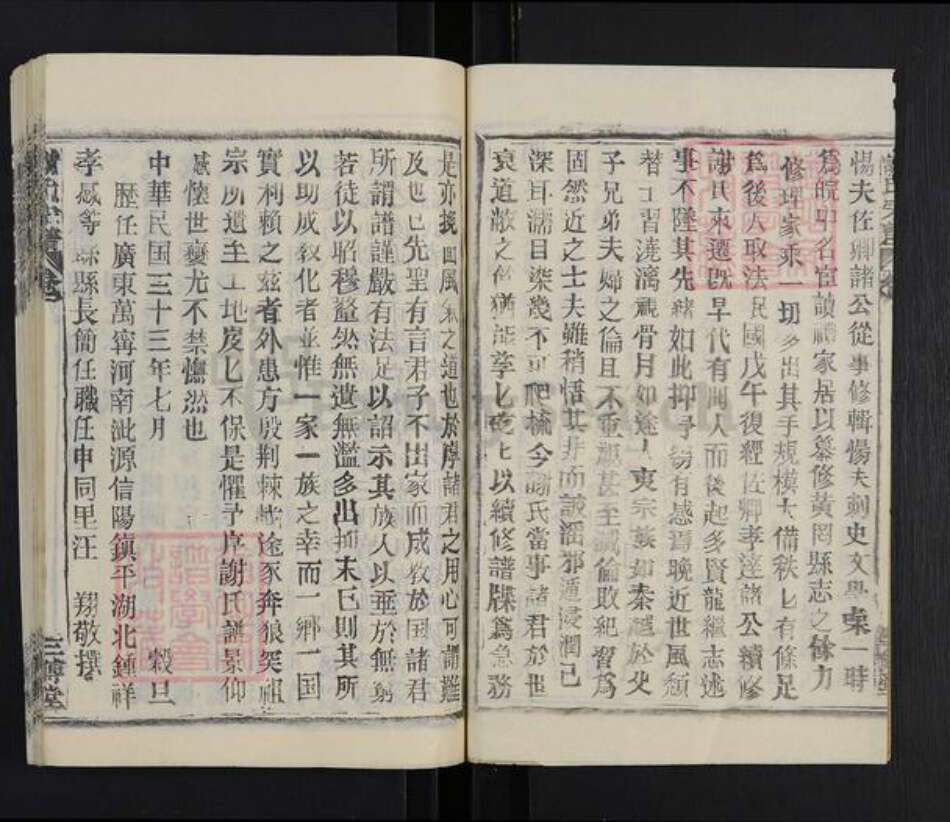 惕夫佐卿諸公從事修輯惕夫刺史文學 一時
為皖中名宦讀禮家居以纂修黃岡縣志之餘力
修理家乘一切多出其手規模大備秩七有條足
為後人取法民國戊午復經佐卿孝達諸公續修
謝氏來遷既早代有聞人而後起多賢龍繼志述
事不墜其先緒如此抑予 有感焉晚近世風頹
替工習澆漓視骨肉如途人夷宗族如秦越於父
子兄弟夫婦之倫且不重視甚至滅倫敗紀習為
固然近之士夫雖稍悟其非而詖滛邪遁浸潤已
深耳濡目染幾不可爬梳今謝氏當事諸君於世
衰道敝之 猶能孳七 上以續修譜牒為急務
是亦挽 風 之道也於序諸君之用心可謂難
及也已先聖有言君子不出家而成教於国諸君
所謂譜謹嚴有法足以詔示其族人以垂於無窮
若徒以昭穆 無遺無濫多出抑末已則其所
以助成敎化者並惟一家一族之幸而一鄉一国
實利賴之茲者外患方殷荊棘 途豕奔狼突祖
宗所遺至 土地岌七不保是懼予序謝氏譜景仰
感懷世變尤不禁憮然也
中華民国三十三年七月 穀旦
歷任廣東萬寗河南泚源信陽鎮平湖北鍾祥
孝感等縣縣長簡任職任申同里汪 翔敬撰
三禮堂